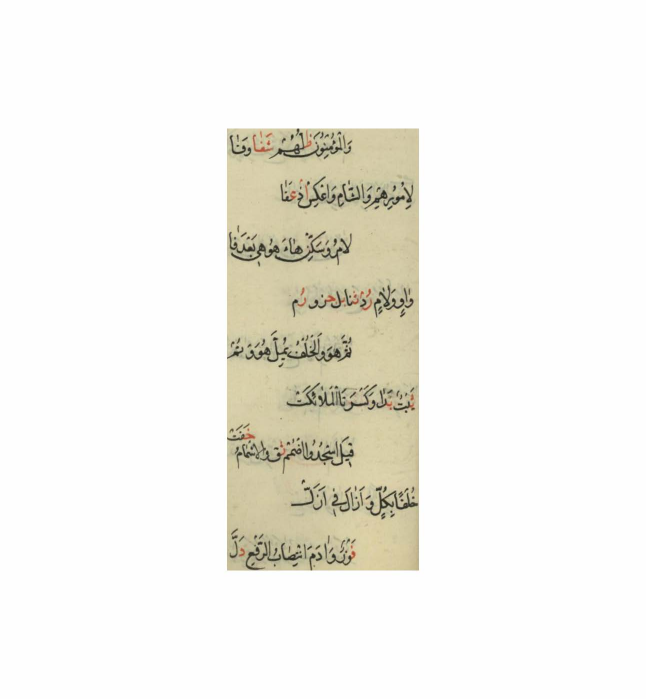 وَالْمُؤْمِنُونَ ظِلُّهُمْ شَفَا وَفَا
لِامُورِهِمْ وَالشَّامِ وَاعْكِسْ اذْ عَفَا
لامْرُ وَسَكِّنْ هَاءَ هُوَ هِيَ بَعْدَ فَا
وَاوٍ وَلَامٍ رُدْ ثَنَا بَلْ حُزْ وَرُمْ
ثُمَّ هُوَ وَالْخُلْفُ يُمِلَّ هُوَ وَثُمْ
ثَبْتٌ بَدَا وَكَسْرَ تَا الْمَلَائِكَتْ
قَبْلَ اسْجُدُوا اضْمُمْ ثِقْ وَالِاشْمَامُ خَفَتْ
خُلْفًا بِكُلٍّ وَأَزَالَ فِي أَزَلّْ
فَوْزٌ وَآدَمَ انْتِصَابُ الرَّفْعِ دَلّْ